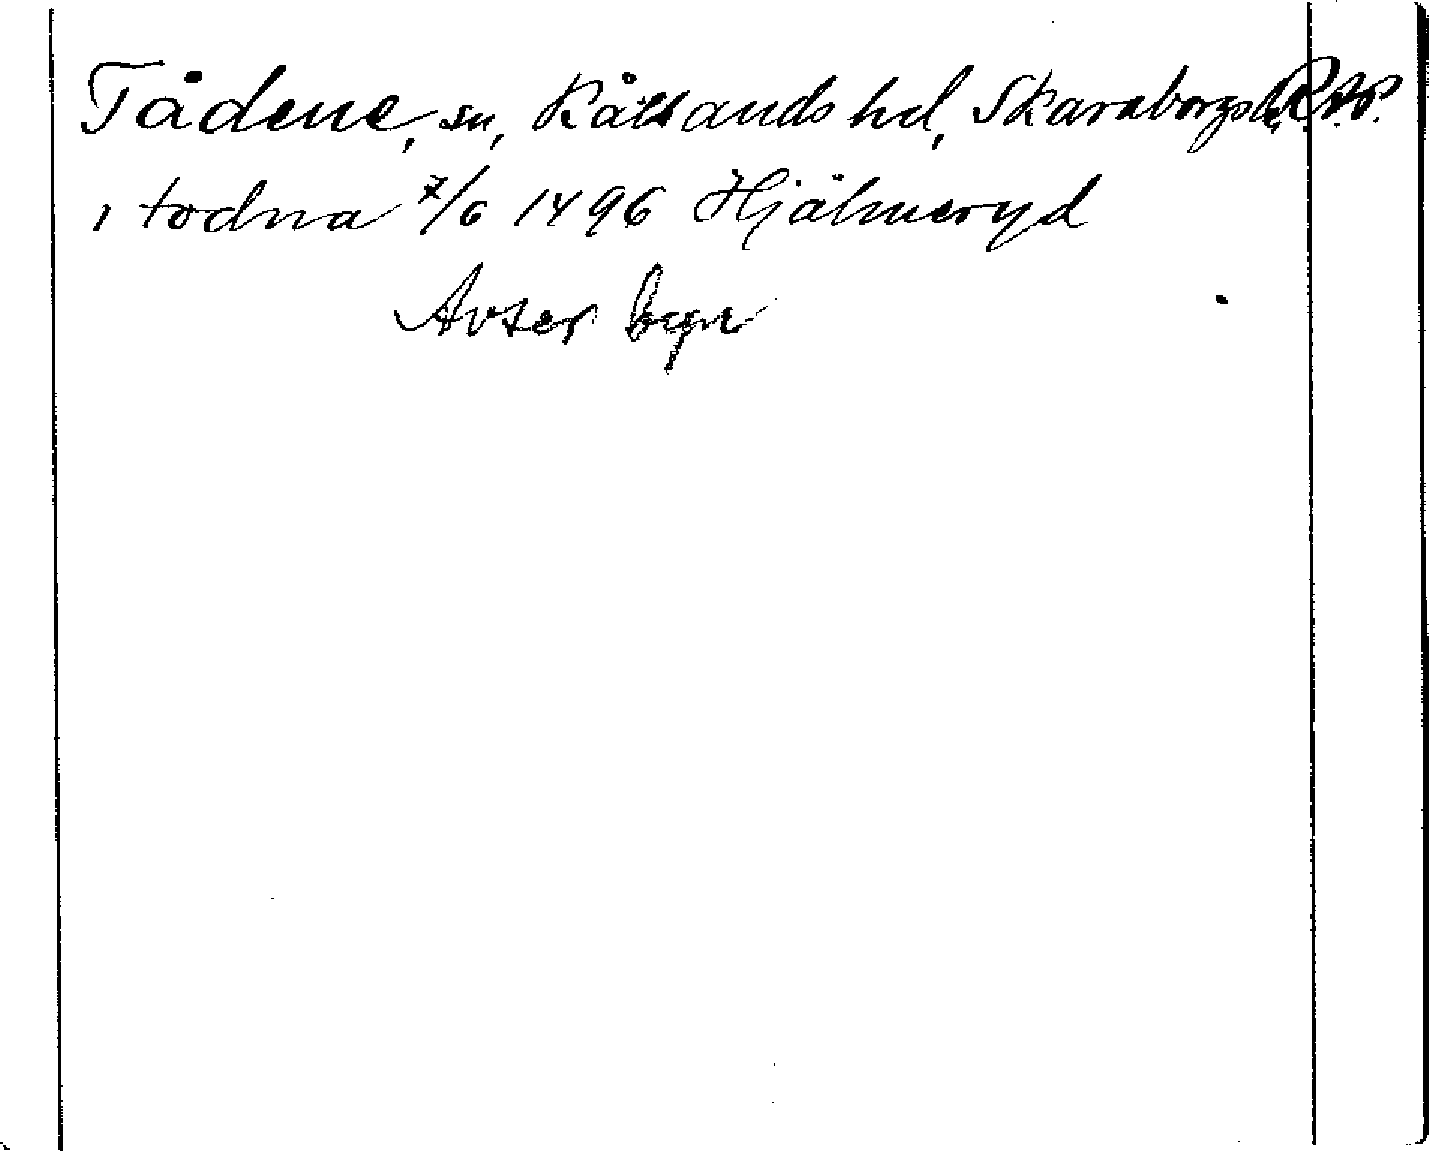 Tådene, sn, Kållands hd, Skaraborgs l. R.A.P.
i todna 7/6 1496 Hjälmeryd
Avser byn